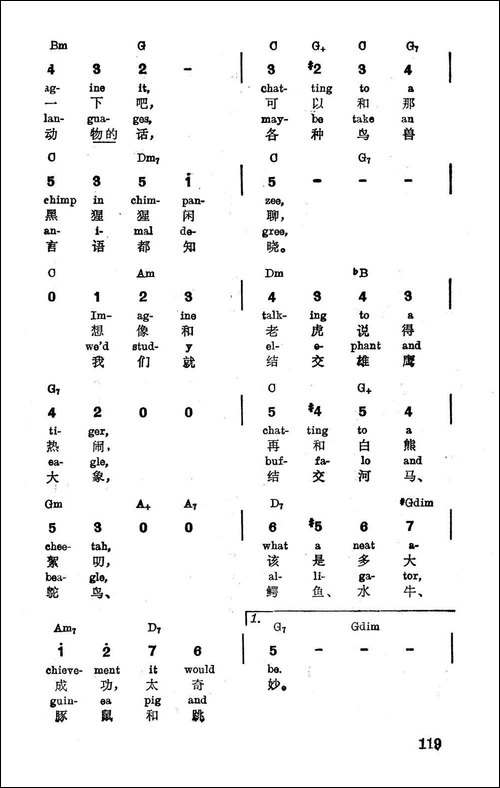 Bm G C G+ C G7
4 3 2 - | 3 #2 3 4 |
ag- ine it, chat- ting to a
一 下 吧, 可 以 和 那
lan- gua- ges, may- be take an
动 物的 话, 各 种 鸟 兽
C Dm7 C G7
5 3 5 i | 5 - - - |
chimp in chim- pan- zee,
黑 猩 猩 闲 聊,
an- i- mal de- gree,
言 语 都 知 晓。
C Am Dm bB
0 1 2 3 | 4 3 4 3 |
Im- ag- ine talk- ing to a
想 像 和 老 虎 说 得
we'd stud- y el- e- phant and
我 们 就 结 交 雄 鹰
G7 C G+
4 2 0 0 | 5 #4 5 4 |
ti- ger, chat- ting to a
热 闹, 再 和 白 熊
ea- gle, buf- fa- lo and
大 象, 结 交 河 马、
Gm A+ A7 D7 #Gdim
5 3 0 0 | 6 #5 6 7 |
chee- tah, what a neat a-
絮 叨, 该 是 多 大
bea- gle, al- li- ga- tor,
鸵 鸟、 鳄 鱼、 水 牛、
Am7 D7 1. G7 Gdim
i 2̇ 7 6 | 5 - - - |
chieve- ment it would be.
成 功, 太 奇 妙。
guin- ea pig and
豚 鼠 和 跳
119